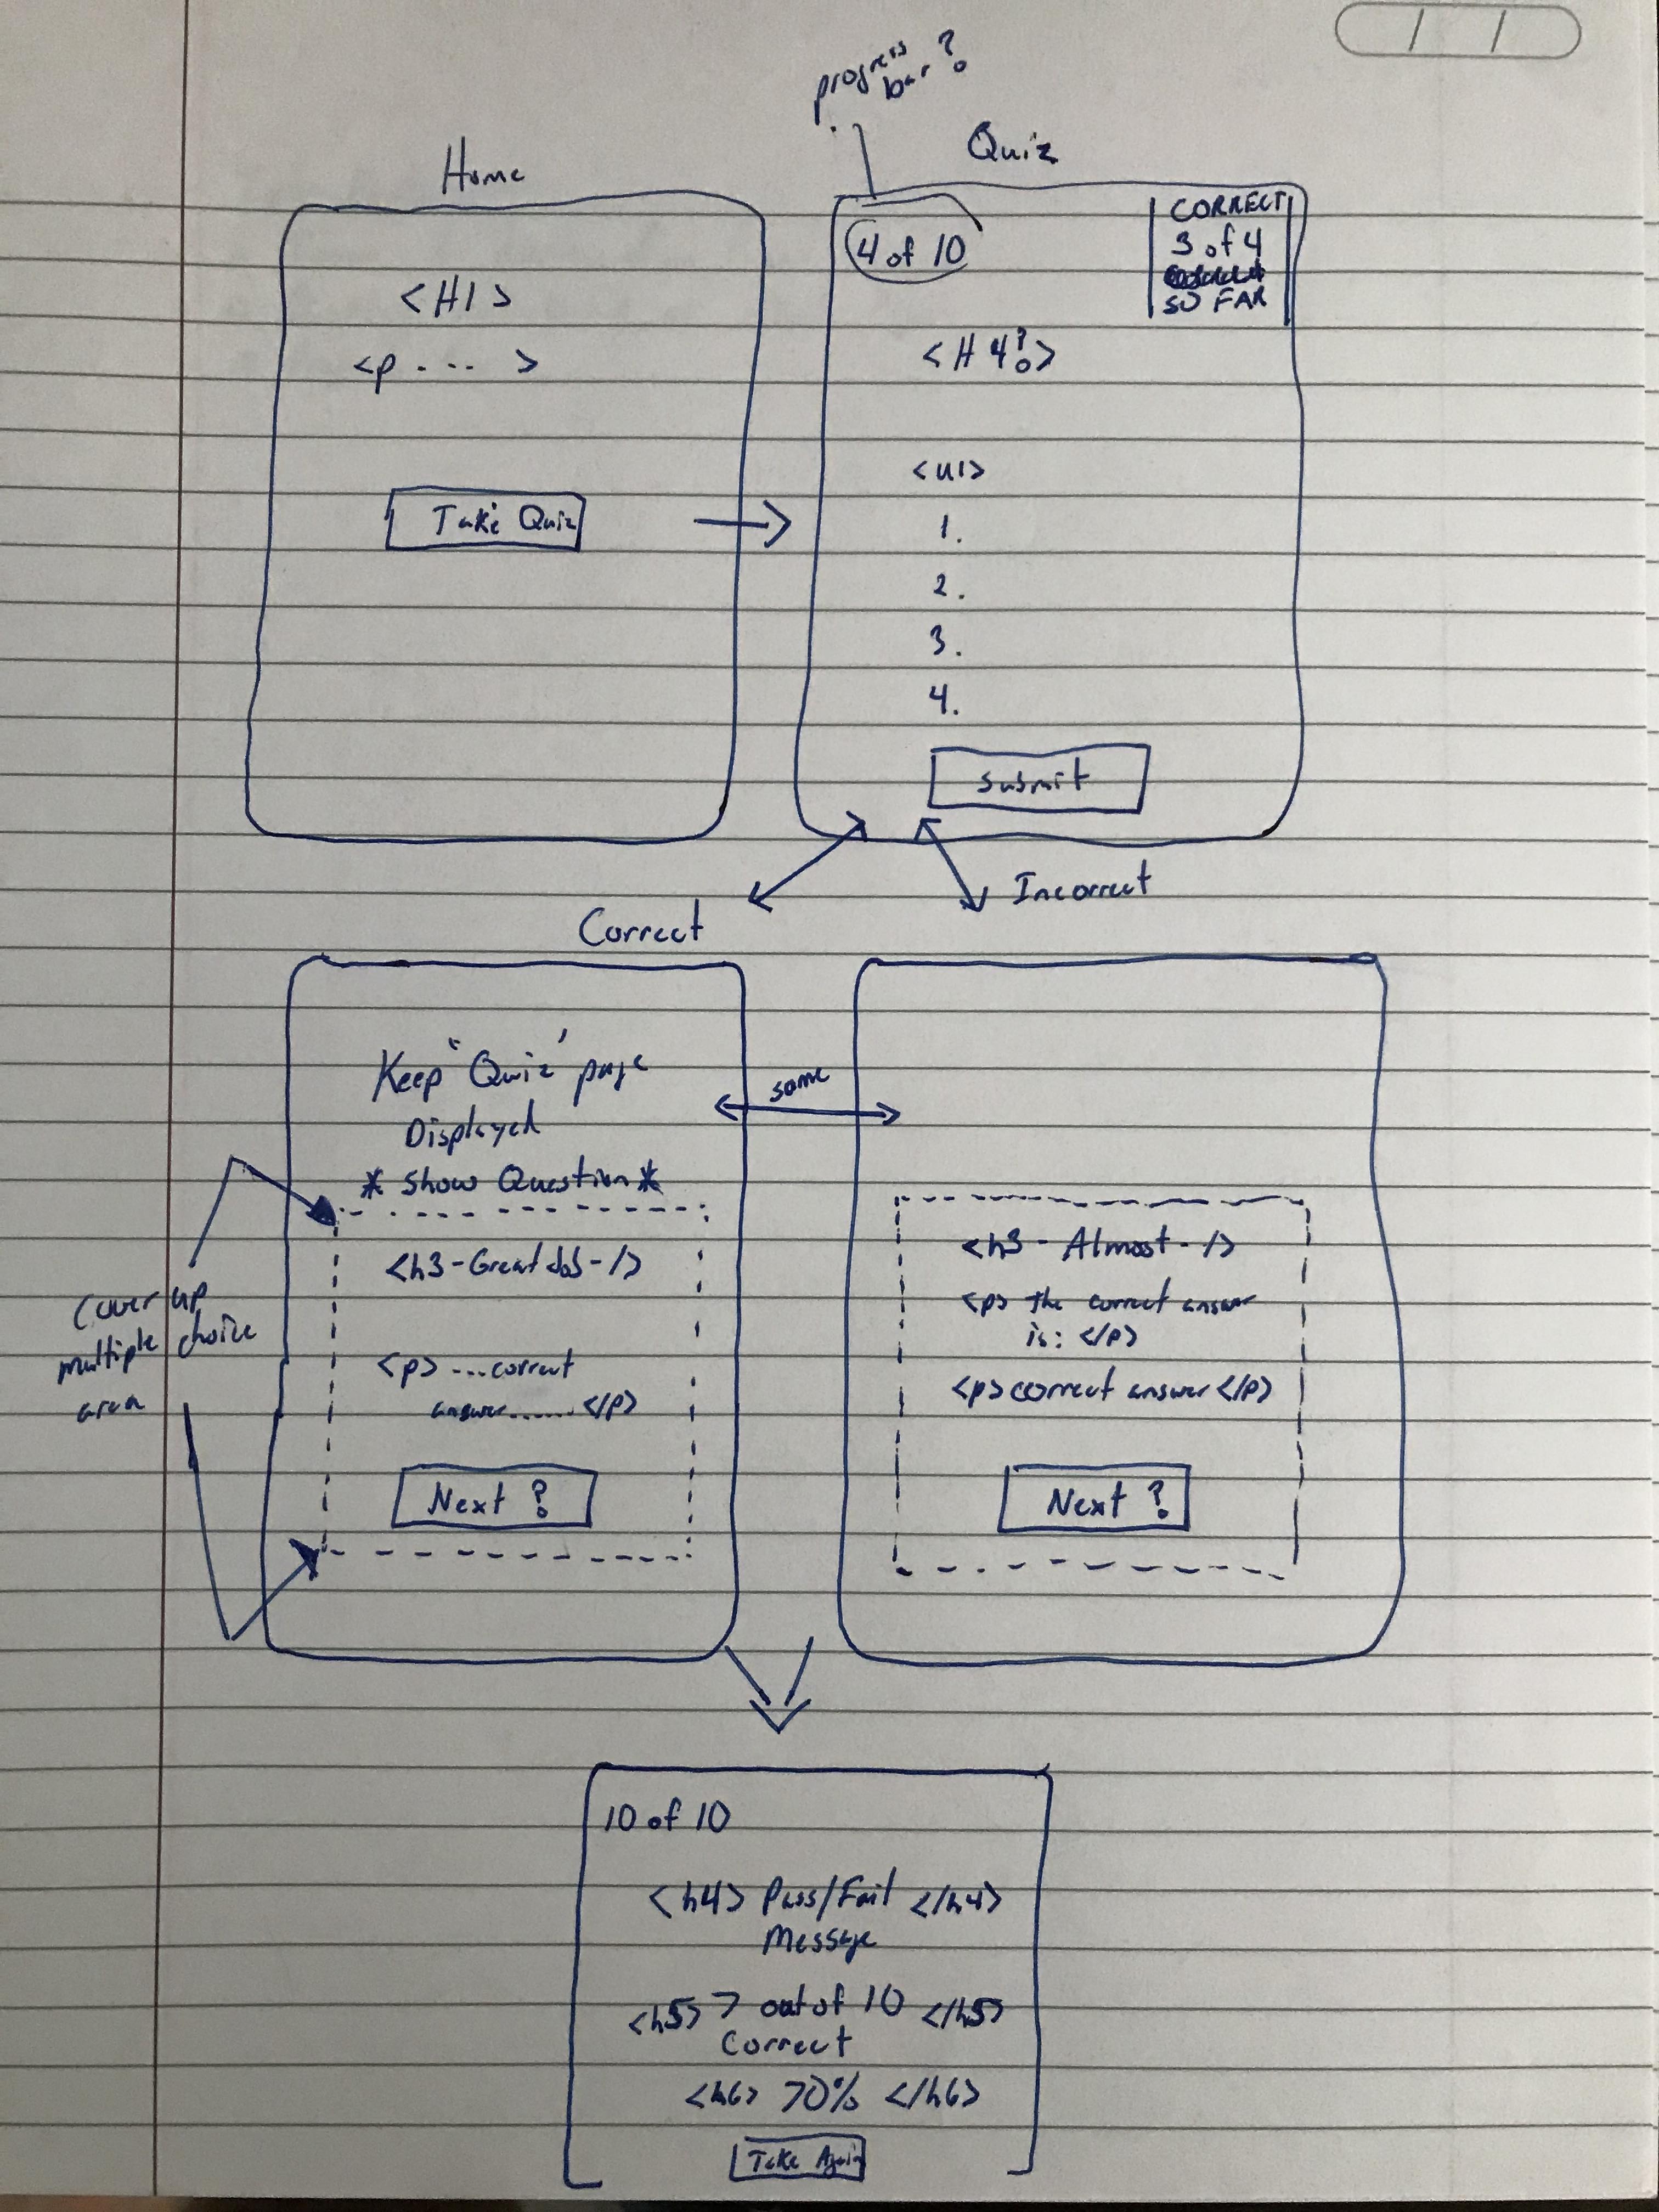 progress
bar ?
Home
<H1>
<p . - - - >
Take Quiz
Quiz
4 of 10
CORRECT
3 of 4
SO FAR
<H4?>
<ul>
1.
2.
3.
4.
Submit
Correct
Incorrect
Keep "Quiz' page
Displayed
* Show Question *
<h3-Great Job-/>
<p> ...correct
answer....... </p>
Next ?
same
Cover up
multiple choice
area
<h3 - Almost - />
<p> the correct answer
is: </p>
<p> correct answer </p>
Next ?
10 of 10
<h4> Pass/Fail </h4>
Message
<h5> 7 out of 10 </h5>
Correct
<h6> 70% </h6>
Take Again